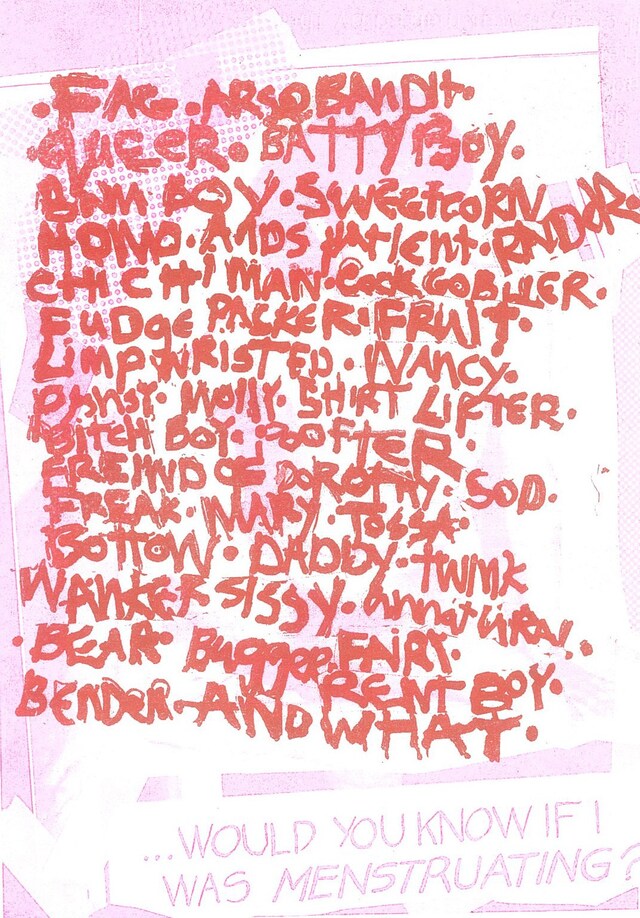 .FAG.ARSOBANDIT.
QUEER. BATTYBOY.
BUM BOY.SWEETCORN
HOMO.AIDS PATIENT.RNDR.
CHICHI MAN.COCK GOBLLER.
FUDGE PACKER.FRUIT.
LIMPWRISTED.NANCY.
PANSY. MOLLY. SHIRT LIFTER.
BITCH BOY. POOFTER.
FREIND OF DOROTHY. SOD.
FREAK.MARY.TOSSA.
BOTTOM. DADDY.TWINK
WANKER SISSY.UNNATURAL.
.BEAR. BUGGER.FAIRY.
BENDER. RENT BOY.
AND WHAT.
...WOULD YOU KNOW IF I
WAS MENSTRUATING?